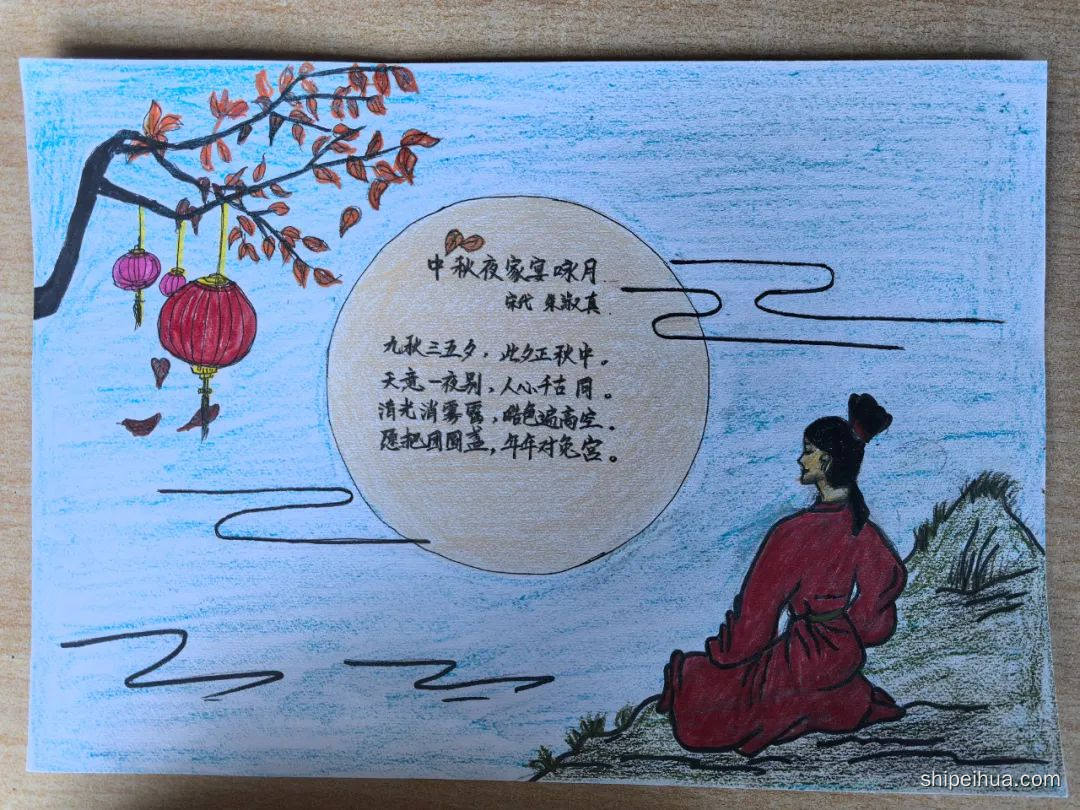 中秋夜家宴咏月
宋代 朱淑真
九秋三五夕，此夕正秋中。
天意一夜别，人心千古同。
清光消雾露，皓色遍高空。
愿把团圆盏，年年对兔宫。
shipeihua.com